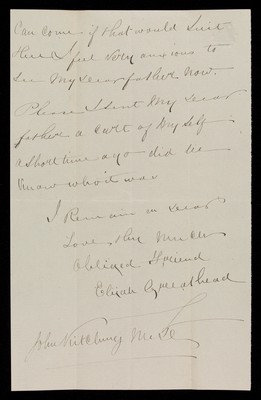 Can come if that would suit
thee I feel very anxious to
see my dear father now.
Please I sent my dear
father a cart of my self
a short time ago did he
know who it was
I Remain in dear
Love thy much
obliged friend
Elijah Greathead
John Kitching